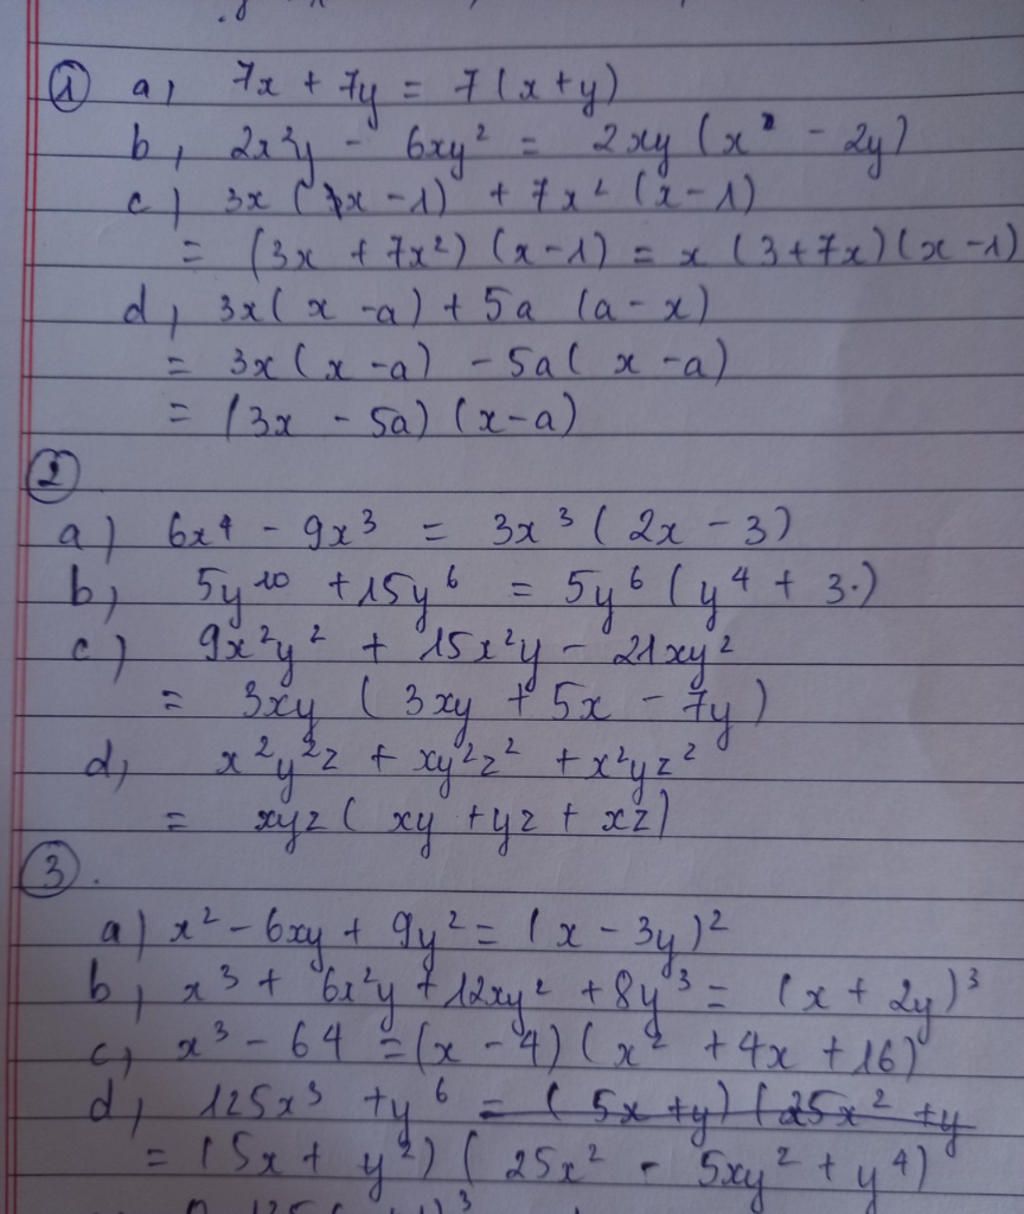 ① a, 7x + 7y = 7(x+y)
b, 2x²y - 6xy² = 2xy (x - 2y)
c) 3x (x - 1) + 7x² (x - 1)
= (3x + 7x²) (x - 1) = x (3 + 7x)(x - 1)
d, 3x( x - a) + 5a (a - x)
= 3x(x - a) - 5a( x - a)
= (3x - 5a) (x - a)
②
a) 6x⁴ - 9x³ = 3x³ (2x - 3)
b, 5y¹⁰ + 15y⁶ = 5y⁶ (y⁴ + 3.)
c) 9x²y² + 15x²y - 21xy²
= 3xy ( 3xy + 5x - 7y)
d, x²y²z + xy²z² + x²yz²
= xyz ( xy + yz + xz)
③.
a) x² - 6xy + 9y² = (x - 3y)²
b, x³ + 6x²y + 12xy² + 8y³ = (x + 2y)³
c, x³ - 64 = (x - 4) (x² + 4x + 16)
d, 125x³ + y⁶ = ( 5x + y) (25x² + y
= (5x + y²) ( 25x² - 5xy² + y⁴)